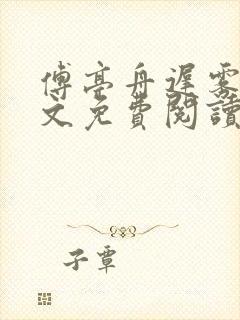 傅亭舟遲霧
文免費閱讀
子蕈